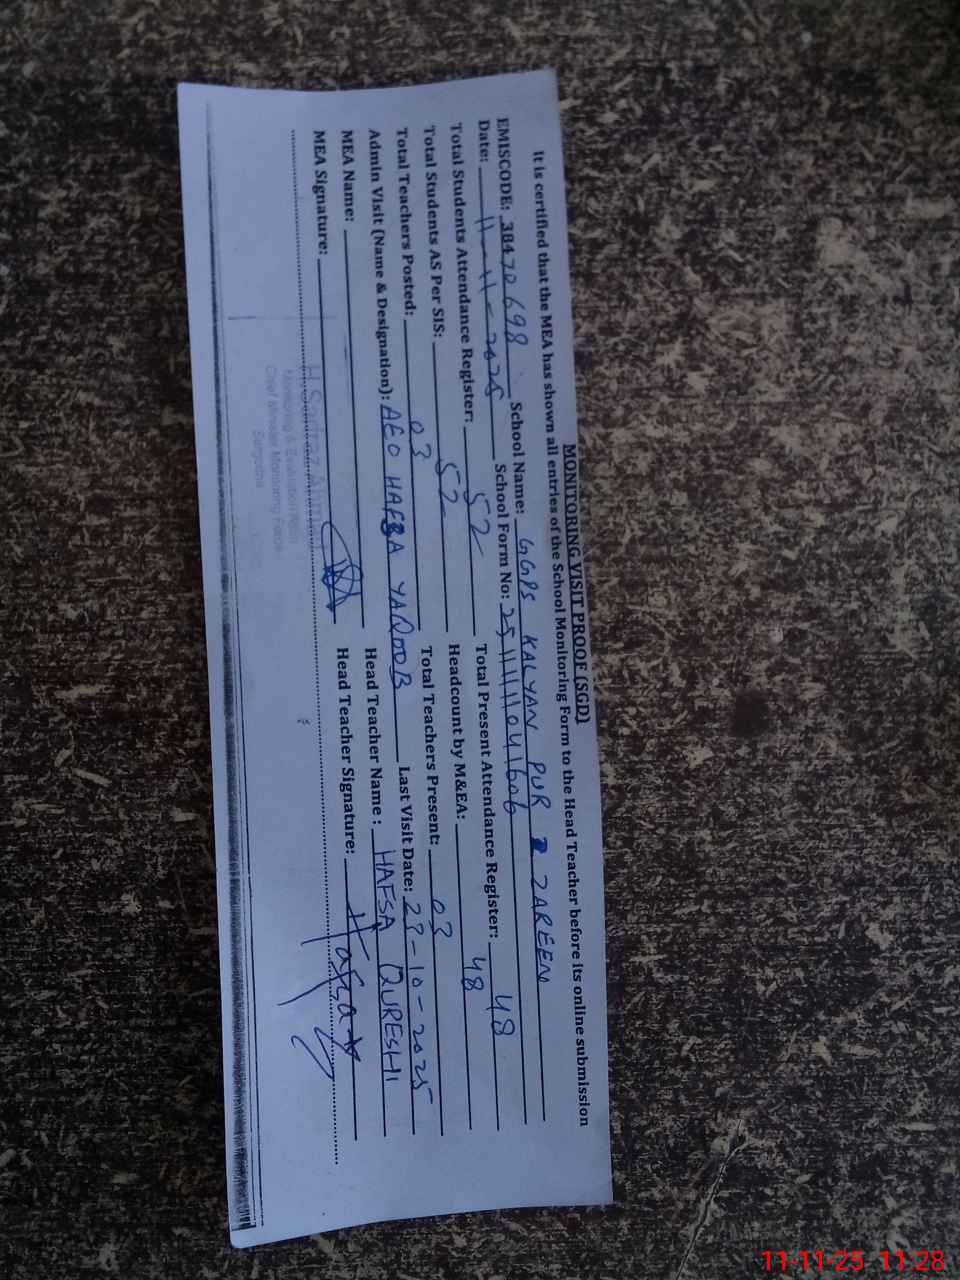 MONITORING VISIT PROOF (SGD)
It is certified that the MEA has shown all entries of the School Monitoring Form to the Head Teacher before its online submission
EMISCODE: 38470698 School Name: GGPS KALYAN PUR ZAREEN
Date: 11-11-2025 School Form No: 2511111041606
Total Students Attendance Register: 52 Total Present Attendance Register: 48
Total Students AS Per SIS: 52 Headcount by M&EA: 48
Total Teachers Posted: 03 Total Teachers Present: 03
Admin Visit (Name & Designation): AEO HAFSA YAQOOB Last Visit Date: 29-10-2025
MEA Name: Head Teacher Name: HAFSA QURESHI
MEA Signature: Head Teacher Signature: Hafsa
Monitoring & Evaluation Asstt
Chief Minister Monitoring Force
Sargodha
11-11-25 11:28